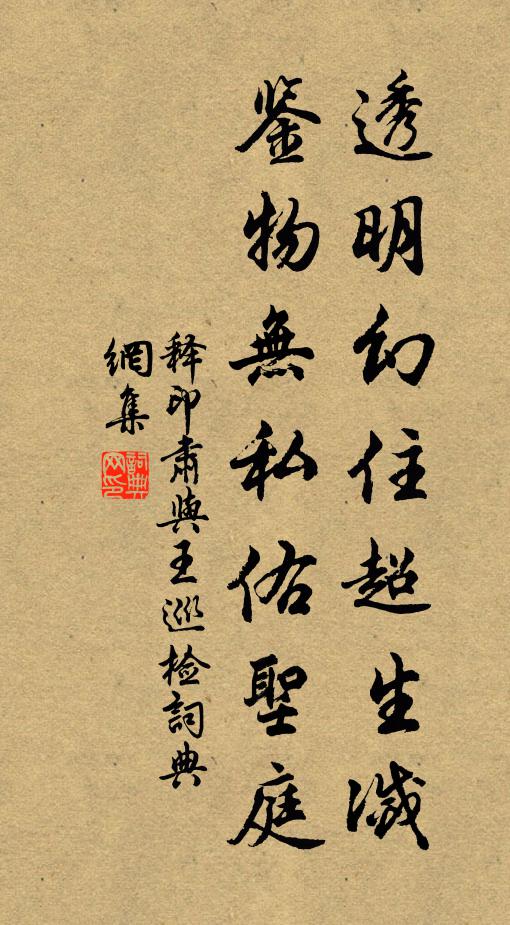 透明幻住超生滅
鉴物無私佑聖庭
释印肃與王巡检詞典
網集
詞典网印